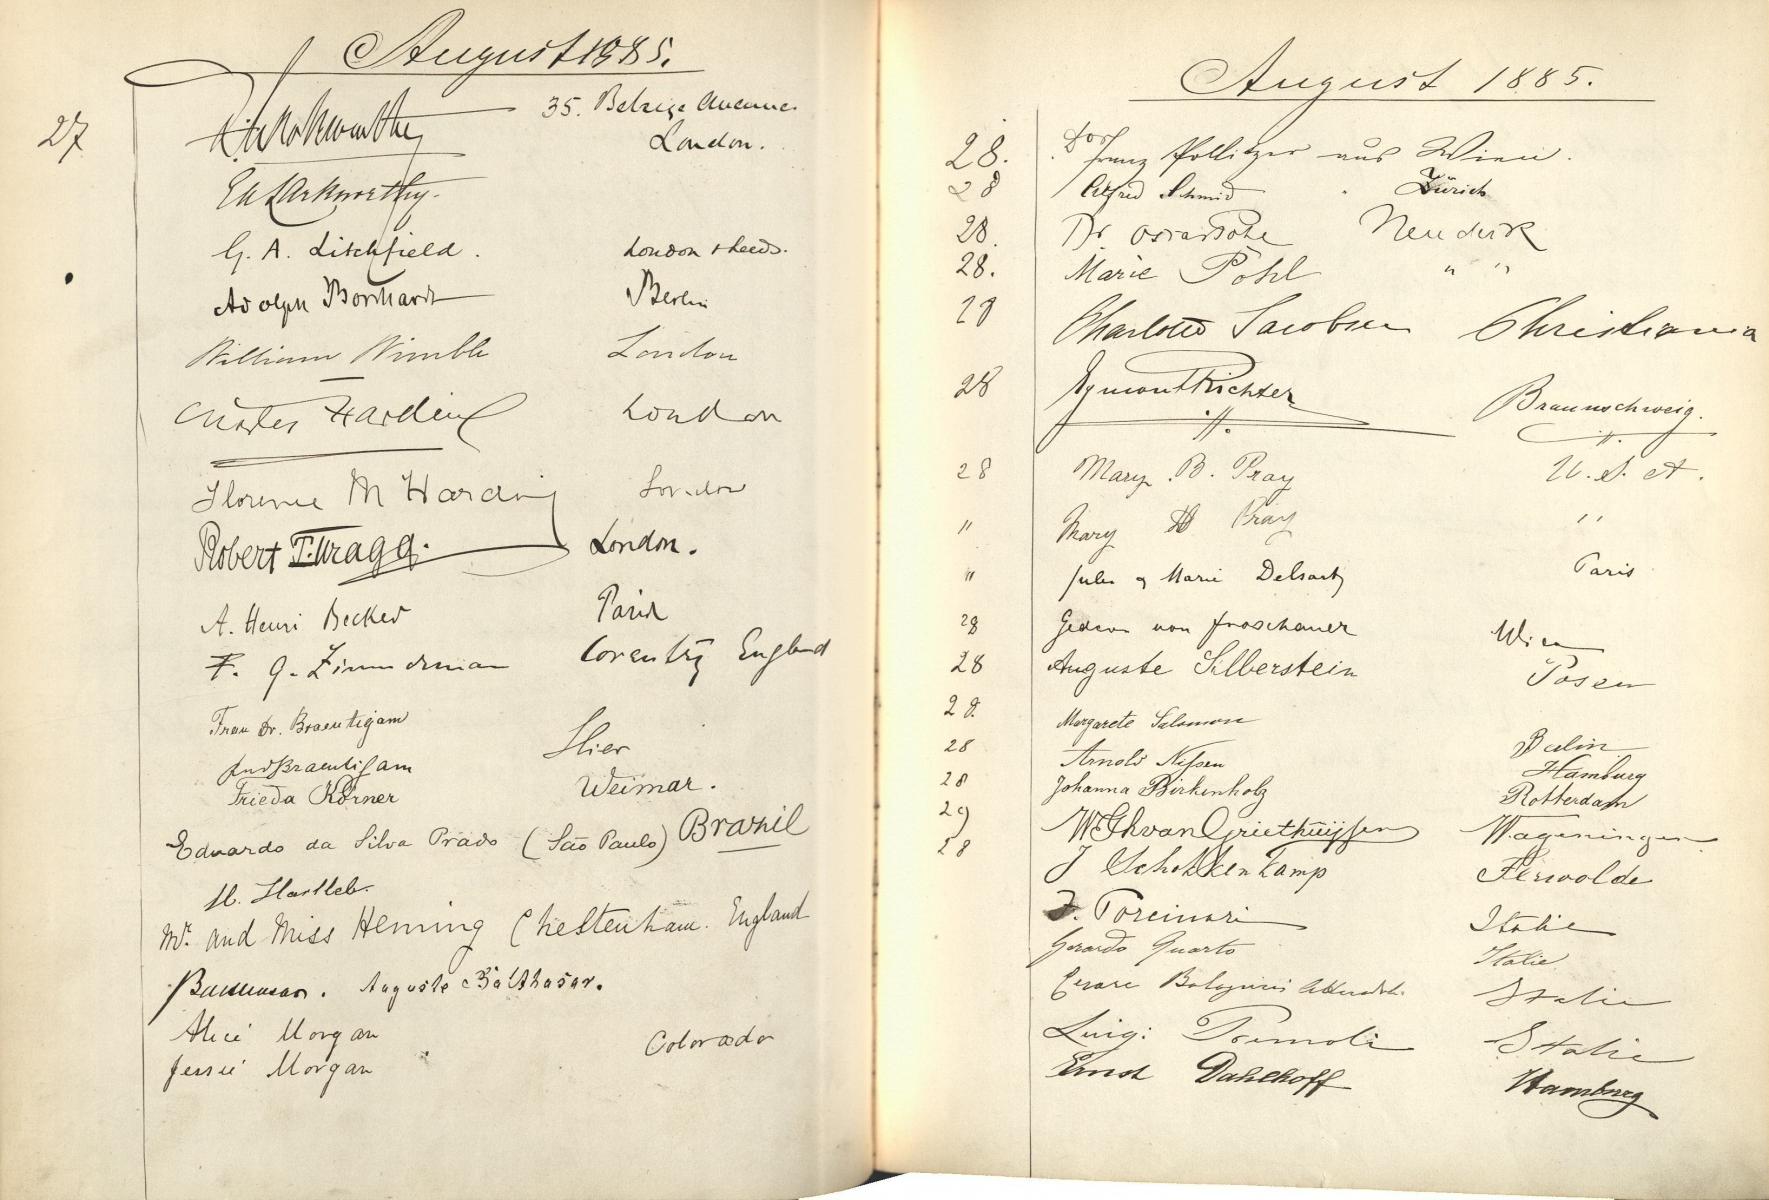 August 1885.
27
35. Belsize Avenue.
London.
G. A. Litchfield. London & Leeds.
Adolph Borchardt Berlin
William Wimble London
Charles Harding London
Florence M Harding London
Robert T. Wragg. London.
A. Henri Becker Paris
F. G. Zimmerman Coventry England
Frau Dr. Braeutigam
Hier
Braeutigam
Frieda Körner Weimar.
Eduardo da Silva Prado (São Paulo) Brazil
H. Hartleb.
Mr. and Miss Heming Cheltenham. England
Auguste Balthasar.
Alice Morgan
Colorado
Jessie Morgan
August 1885.
28. Franz Pollitzer aus Wien.
28 Alfred Schmid " Zürich
28. Dr. Oscar Pohl Neudek
28. Marie Pohl " "
28 Charlotte Jacobsen Christiania
28 Egmont Richter Braunschweig.
28 Mary B. Pray U. S. A.
" Mary H Pray "
" Jules & Marie Delsart Paris
28 Gedeon von Froschauer Wien
28 Auguste Silberstein Posen
28. Margarete Salomon Berlin
28 Arnold Nissen Hamburg
28 Johanna Birkenholz Rotterdam
29 Wageningen
28 J Schokkenkamp
F. Torcinari Italie
Gerardo Quarto Italie
Cesare Italie
Luigi Tremoli Italie
Ernst Dahlhoff Hamburg